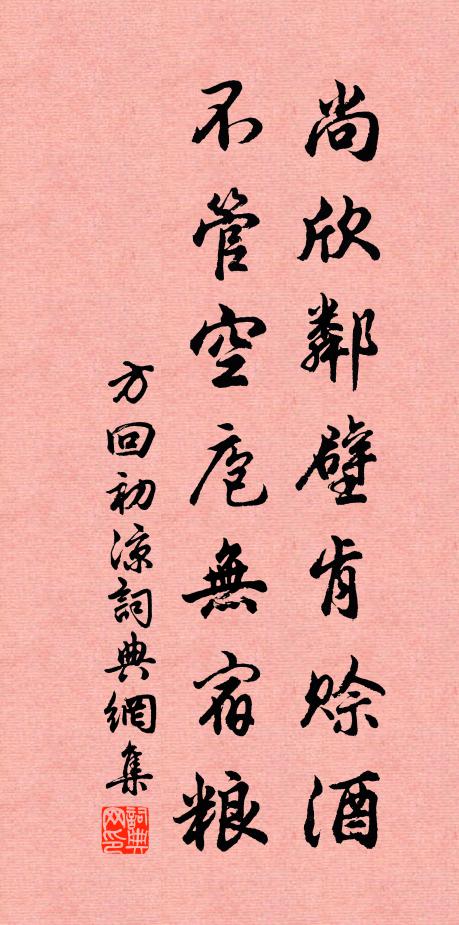 尚欣鄰壁肯赊酒
不管空庖無宿粮
方回初涼詞典網集
詞典网印